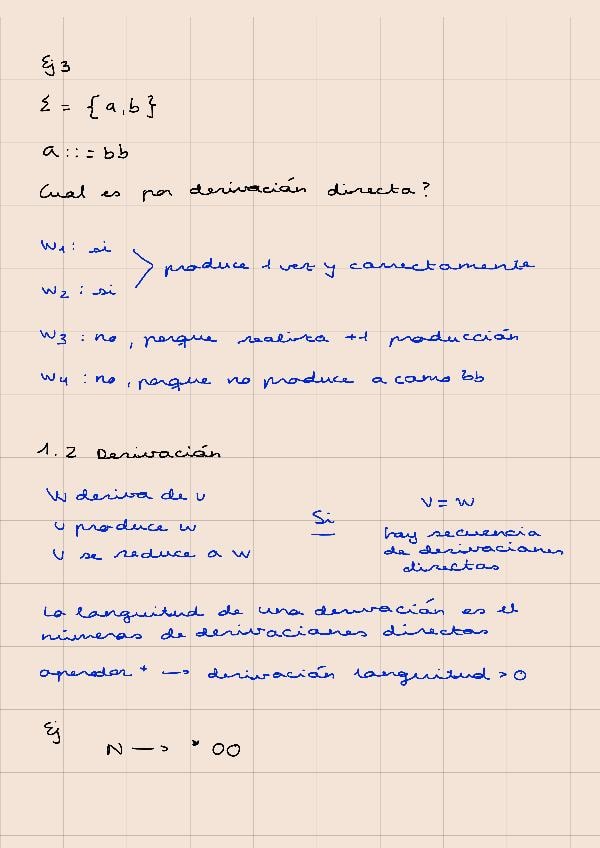 Ej 3
Σ = {a,b}
a::= bb
Cual es por derivación directa?
W1: si
produce 1 vez y correctamente
W2: si
W3: no, porque realiza +1 producción
W4: no, porque no produce a como bb
1.2 Derivación
W deriva de v
v produce w
V se reduce a W
Si
V = W
hay secuencia
de derivaciones
directas
La longuitud de una derivación es el
números de derivaciones directas
operador + —> derivación longuitud > 0
Ej
N —> * 00